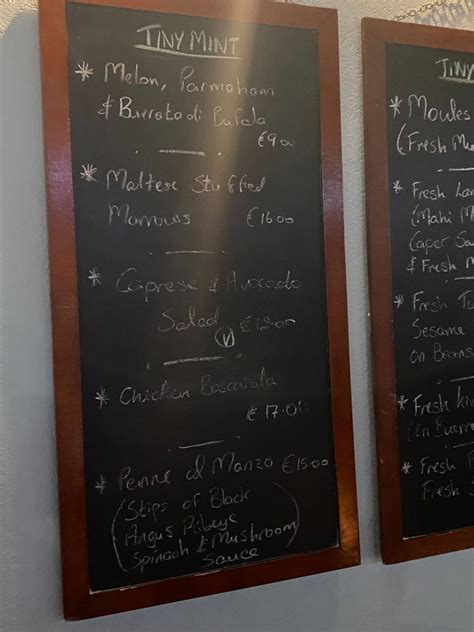 TINY MINT
* Melon, Parmaham
& Burrata di Bufala
€9.00
* Maltese Stuffed
Marrows €16.00
* Caprese & Avocado
Salad (V) €12.00
* Chicken Boscaiola
€17.00
* Penne al Manzo €15.00
(Stips of Black
Angus Ribeye
Spinach & Mushroom
Sauce)
TINY
* Moules
(Fresh Mu
* Fresh Lam
(Mahi M
Caper Sa
& Fresh M
* Fresh Tu
Sesame
on Beans
* Fresh
* Fresh
Fresh S